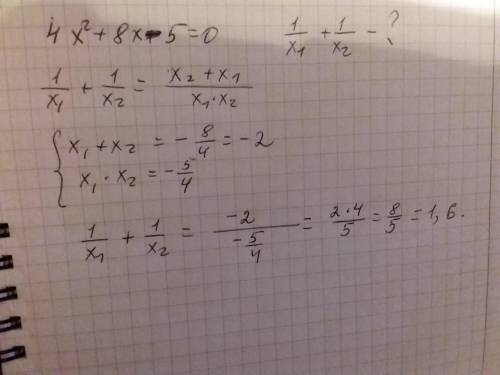 4x² + 8x - 5 = 0 1/x₁ + 1/x₂ - ?
1/x₁ + 1/x₂ = (x₂ + x₁)/(x₁·x₂)
{ x₁ + x₂ = - 8/4 = -2
x₁ · x₂ = - 5/4
1/x₁ + 1/x₂ = -2/(-5/4) = 2·4/5 = 8/5 = 1,6.